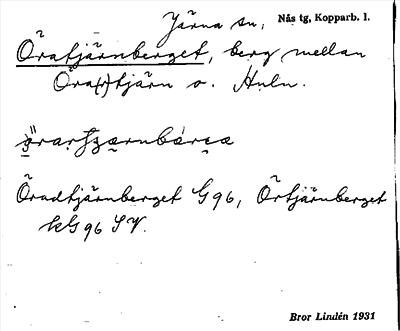 Järna sn, Nås tg, Kopparb. l.
Öratjärnberget, berg mellan
Öra(r)tjärn o. Huln.
Öradtjärnberget G96, Örtjärnberget
kG96 SV.
Bror Lindén 1931